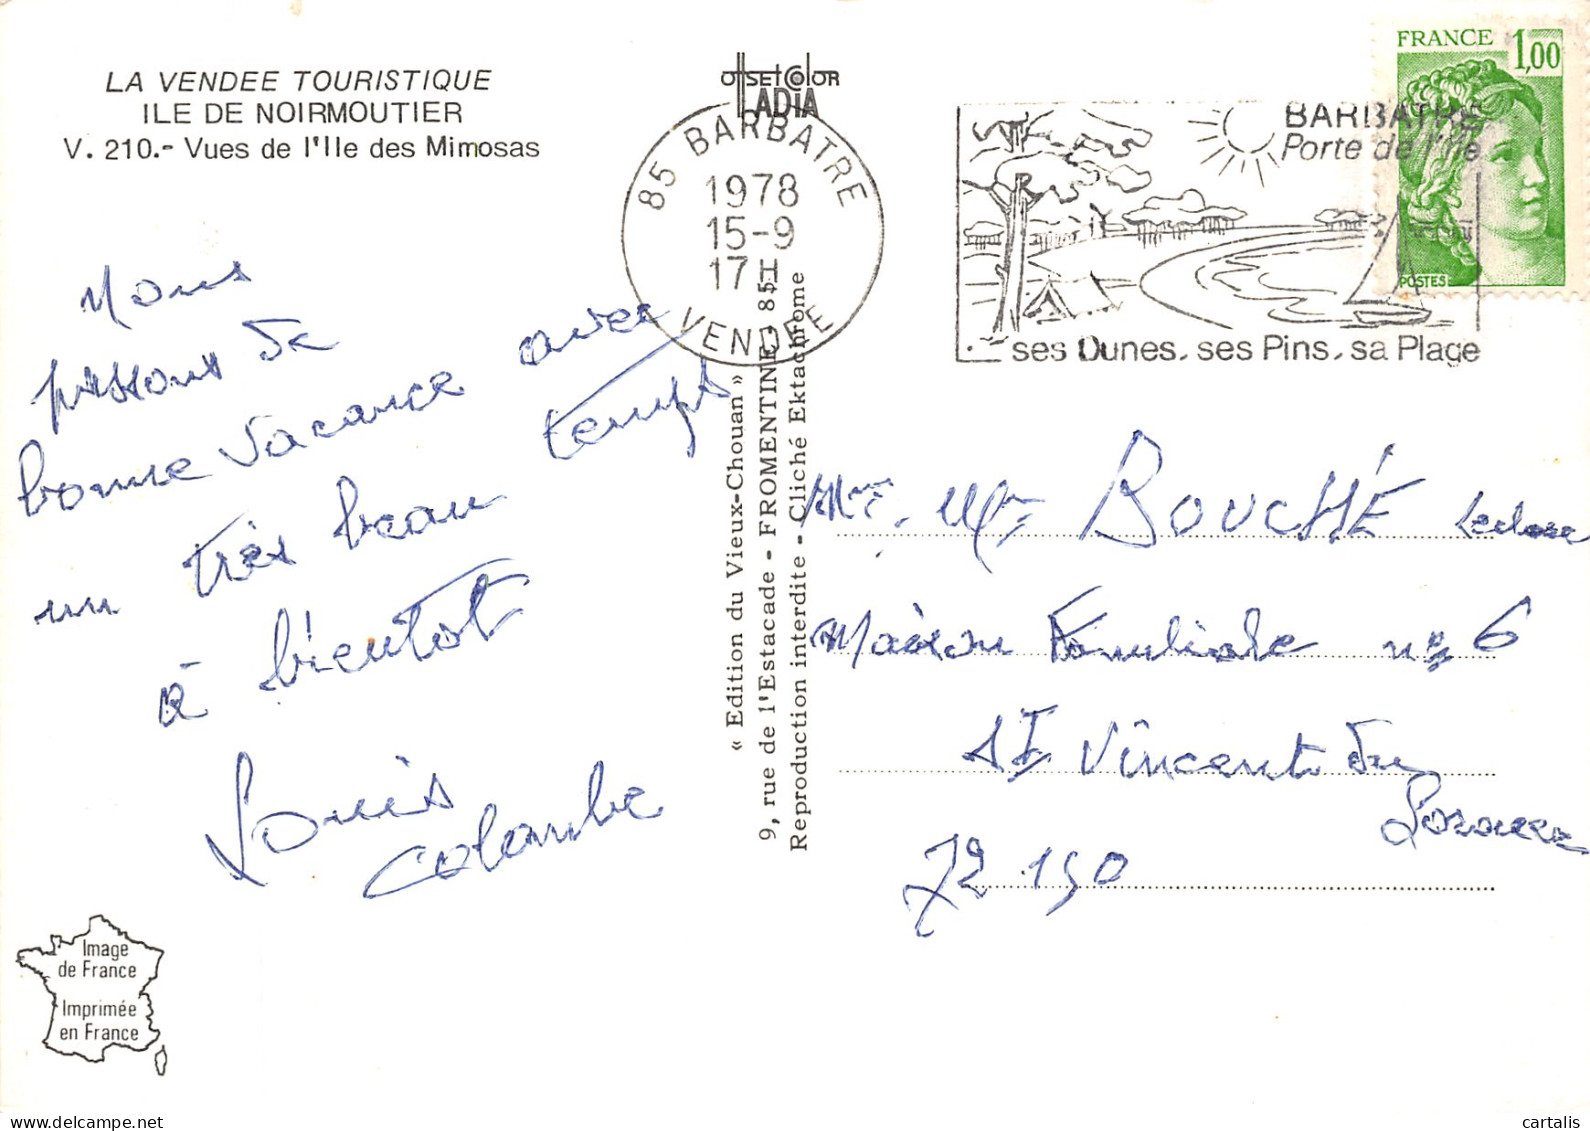 LA VENDEE TOURISTIQUE
ILE DE NOIRMOUTIER
V. 210.- Vues de l'Ile des Mimosas
OffSET COlOR
IADiA
85 BARBATRE
1978
15-9
17H
VENDEE
BARBATRE
Porte de l'Ile
ses Dunes, ses Pins, sa Plage
FRANCE 1,00
POSTES
Nous
passons de
bonne vacance avec
un très beau temps
à bientôt
Louis
Colombe
« Edition du Vieux-Chouan »
9, rue de l'Estacade - FROMENTINE - 85
Reproduction interdite - Cliché Ektachrome
Mr. Mme BOUCHÉ
Maison Familiale n° 6
ST Vincent du
Lorouer
72 150
Image
de France
Imprimée
en France
cartalis